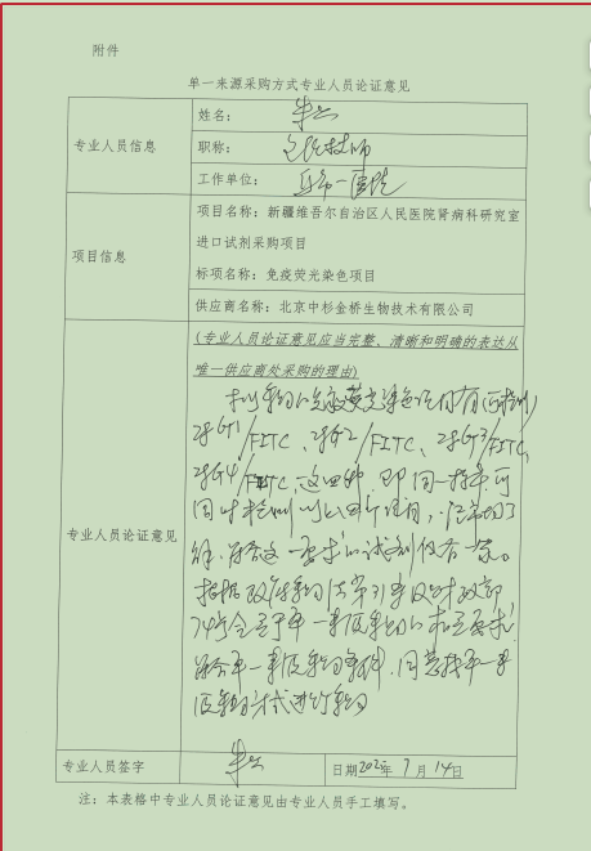 附件
单一来源采购方式专业人员论证意见
专业人员信息
姓名：
职称：技师
工作单位：市一医院
项目信息
项目名称：新疆维吾尔自治区人民医院肾病科研究室
进口试剂采购项目
标项名称：免疫荧光染色项目
供应商名称：北京中杉金桥生物技术有限公司
专业人员论证意见
(专业人员论证意见应当完整、清晰和明确的表达从
唯一供应商处采购的理由)
采购的免疫荧光染色
IgG1/FITC、IgG2/FITC、IgG3/FITC、
IgG4/FITC，这四种，即同一标本可
同时检测以上四个项目，经市场了
解，符合这一要求的试剂仅有一家。
根据政府采购法第31条及财政部
74号令关于单一来源采购的相关要求，
符合单一来源采购条件，同意按单一来
源采购方式进行采购
专业人员签字
日期2025年7月14日
注：本表格中专业人员论证意见由专业人员手工填写。